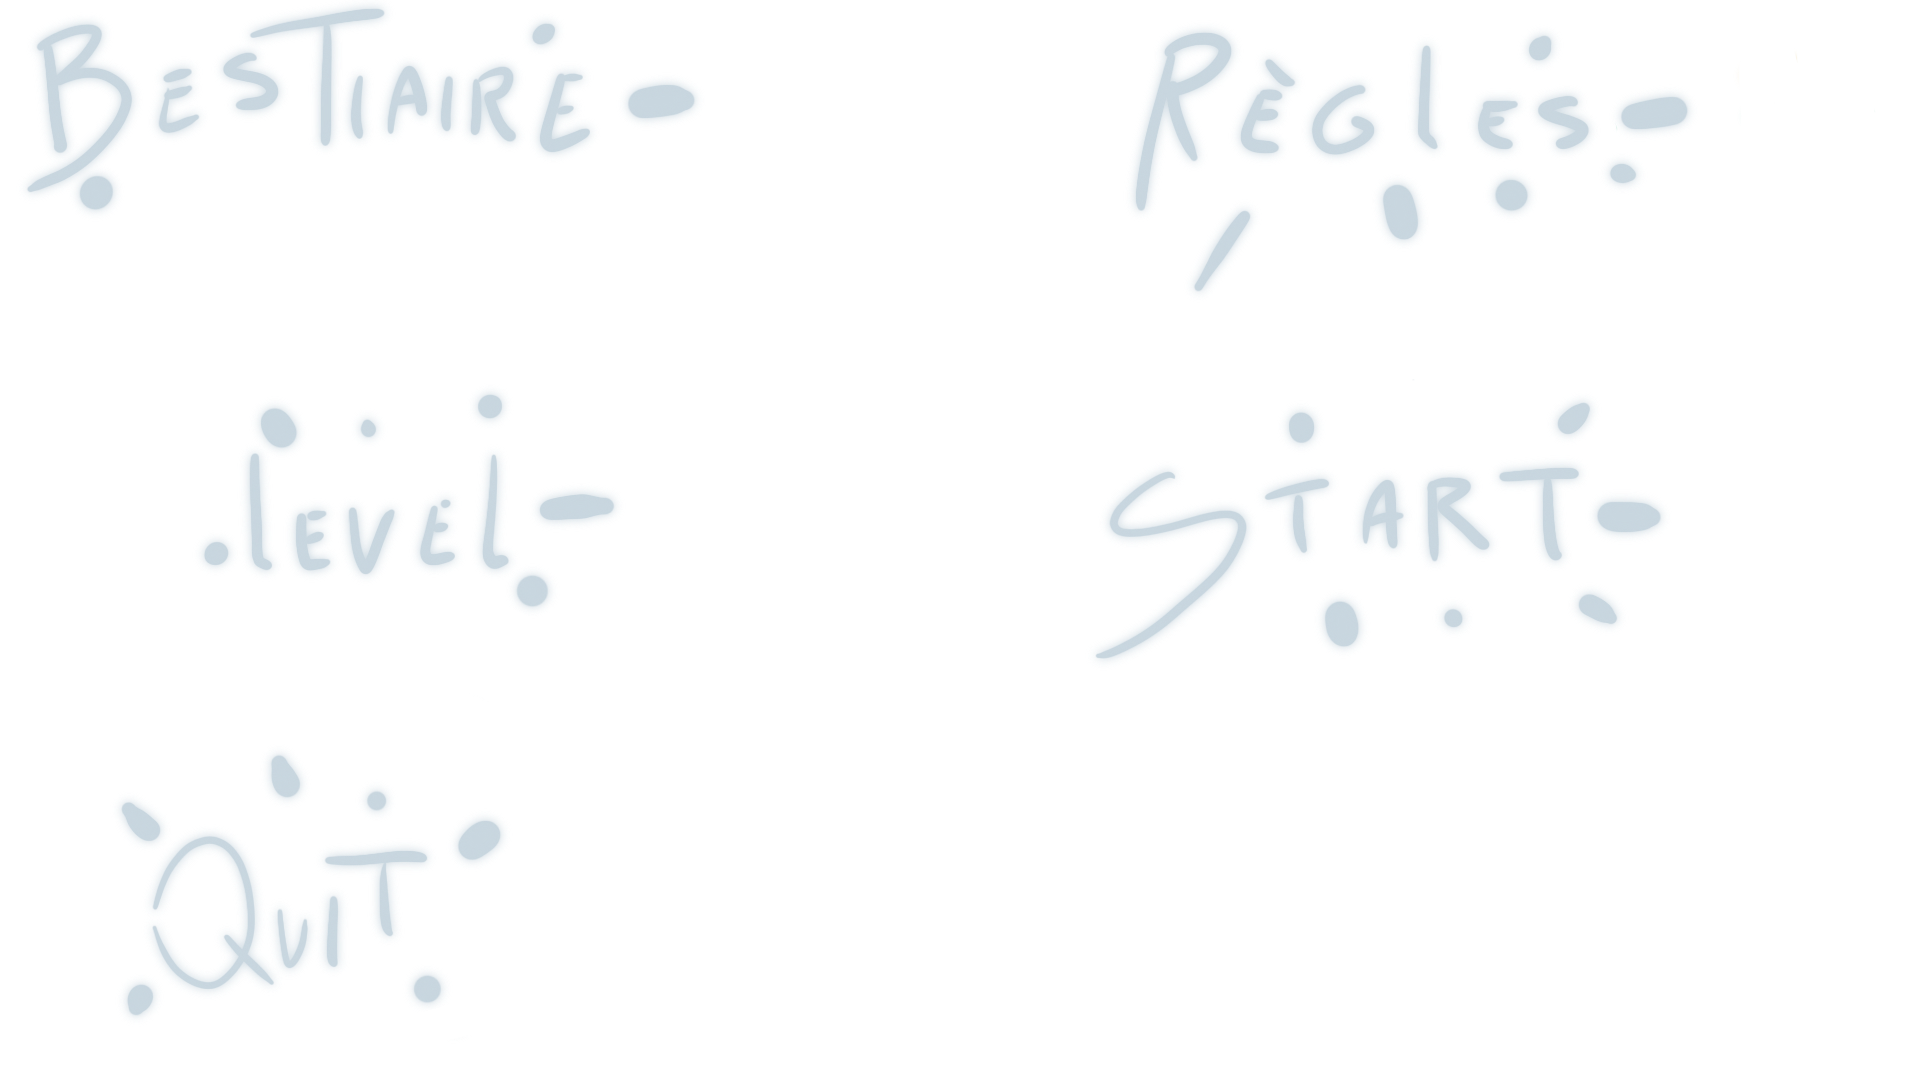 BESTIAIRE -
RÈGLES -
LEVEL -
START -
QUIT